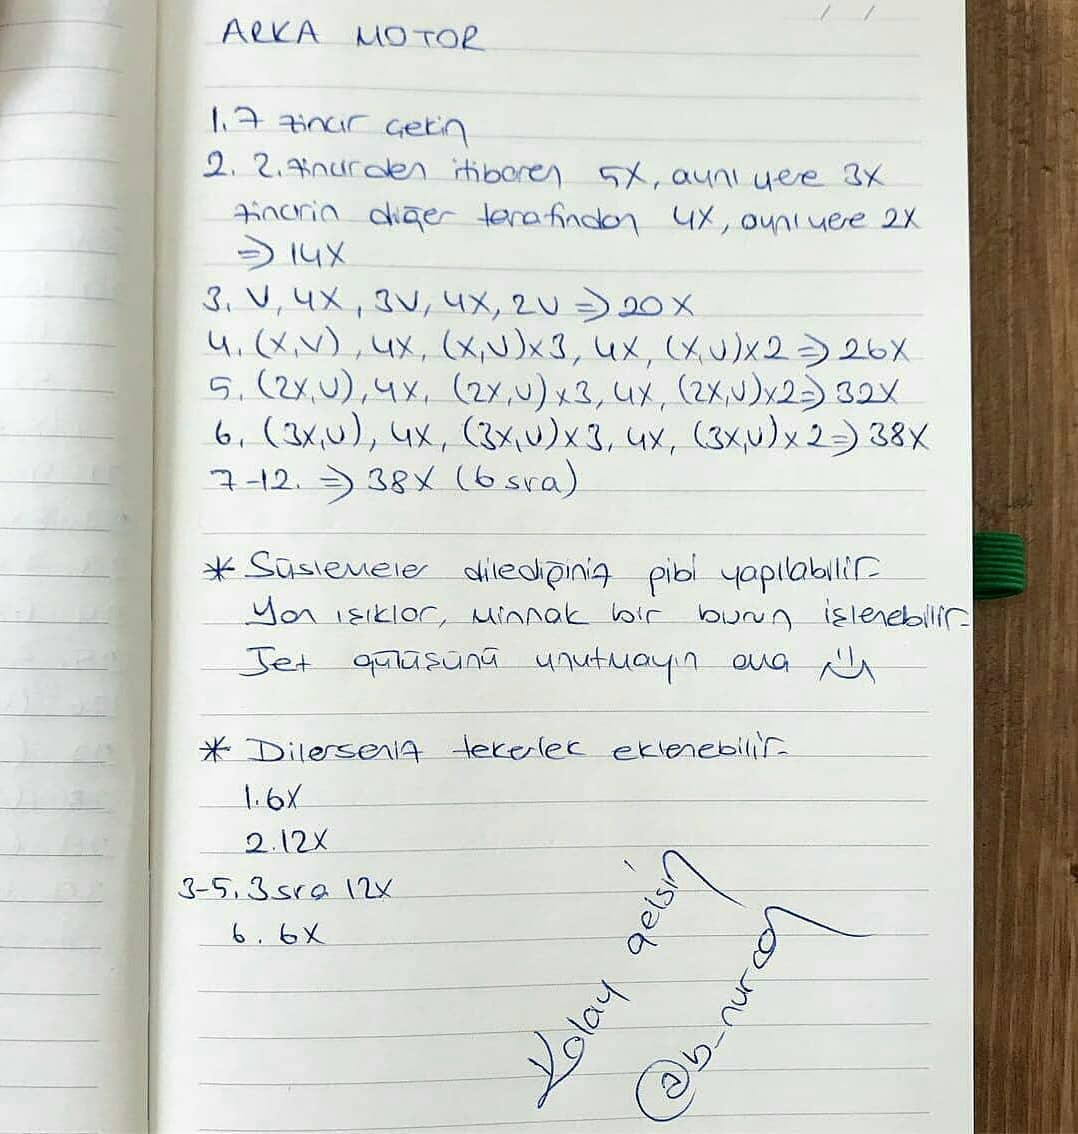 ARKA MOTOR
1. 7 zincir çekin
2. 2. zincirden itibaren 5X, aynı yere 3X
zincirin diğer tarafından 4X, aynı yere 2X
⇒ 14X
3. V, 4X, 3V, 4X, 2V ⇒ 20X
4. (X,V), 4X, (X,V)x3, 4X, (X,V)x2 ⇒ 26X
5. (2X,V), 4X, (2X,V)x3, 4X, (2X,V)x2 ⇒ 32X
6. (3X,V), 4X, (3X,V)x3, 4X, (3X,V)x2 ⇒ 38X
7-12. ⇒ 38X (6 sıra)
* Süslemeler dilediğiniz gibi yapılabilir.
Yan ışıklar, minnak bir burun işlenebilir.
Jet gülüşünü unutmayın ama :)
* Dilerseniz tekerlek eklenebilir.
1. 6X
2. 12X
3-5. 3 sıra 12X
6. 6X
Kolay gelsin
@b_nurcan